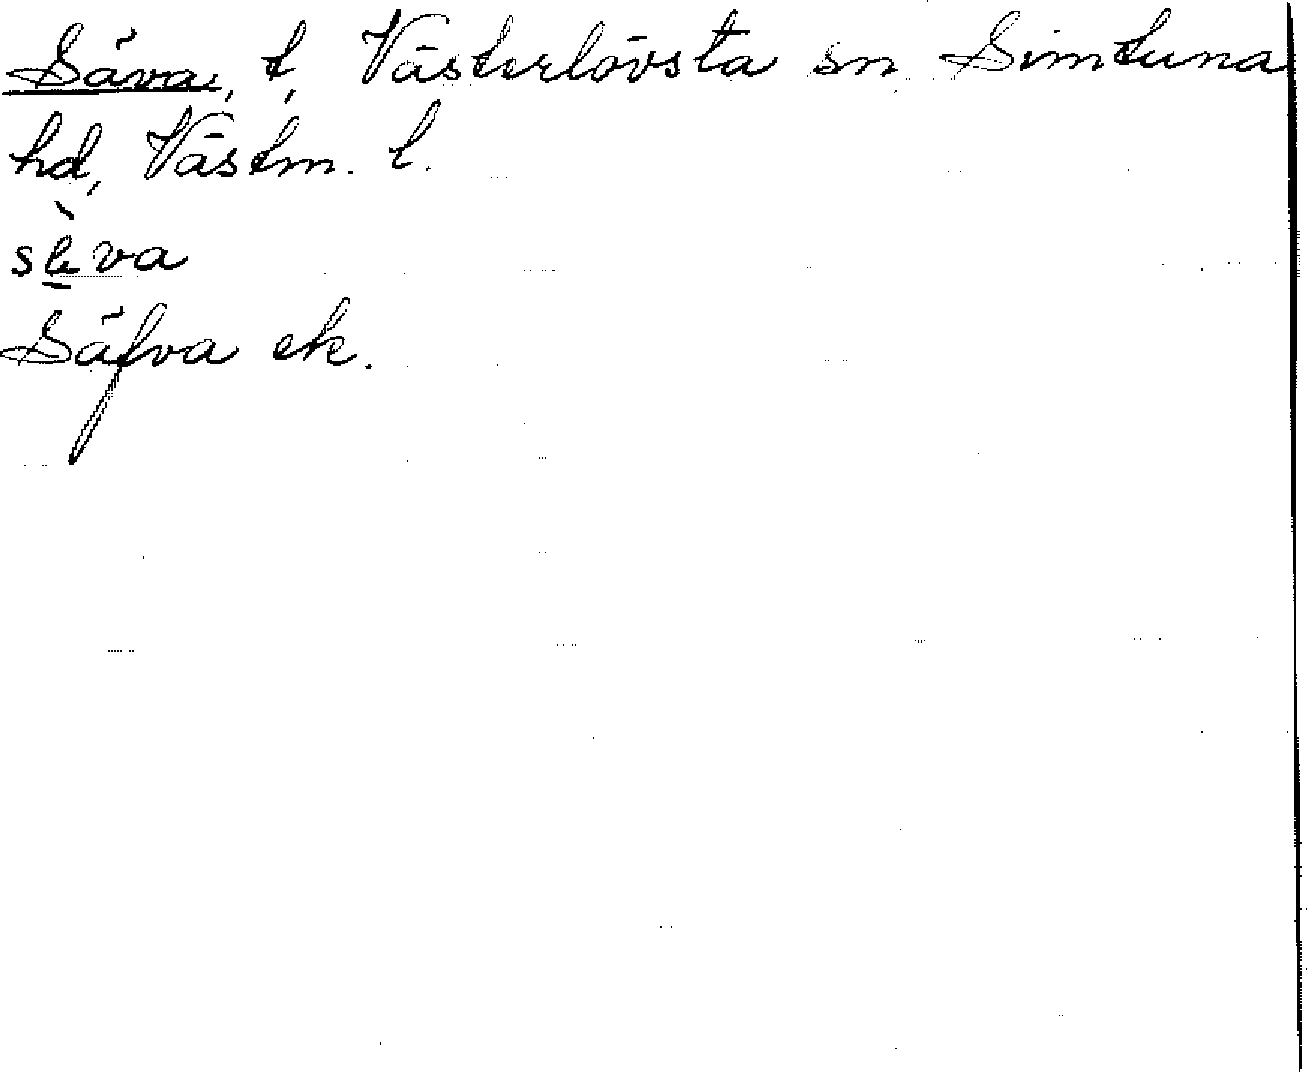 Säva, t, Västerlövsta sn Simtuna
hd, Västm. l.
Säfva ek.